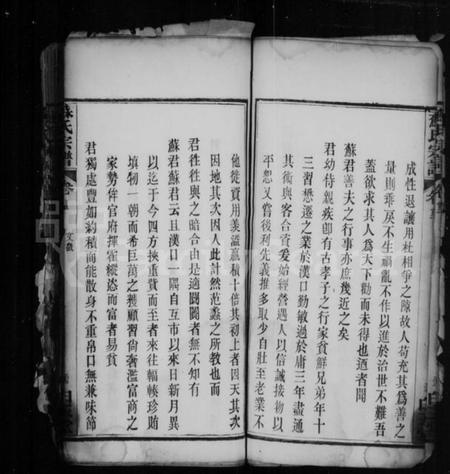 成性退讓用杜相爭之隙故人苟充其為善之
量則乖戾不生禍亂不作以進於治世不難吾
蓋欲求其人為天下勸而未得也迺者聞
蘇君善夫之行事亦庶幾近之矣
君幼侍親疾即有古孝子之行家貧鮮兄弟年十
三習懋遷之業於漢口勤敏過於庸三年盡通
其術與客合資爰始經營遇人以信誠接物以
平恕又嘗後利先義推多取少自壯至老業不
他徙資用羨溢贏積十倍其初上者因天其次
因地其次因人此計然范蠡之所教也而
君往往與之暗合由是適闤闠者無不知有
蘇君蘇君云且漢口一隅自互市以來日新月異
以迄于今四方挾重貲而至者來往輻輳珍賄
填牣一朝而希巨萬之獲顧習尚奢濫富商之
家勢侔官府揮霍縱恣而富者易貧
君獨處豐如約積而能散身不重帛口無兼味節
蘇氏宗譜